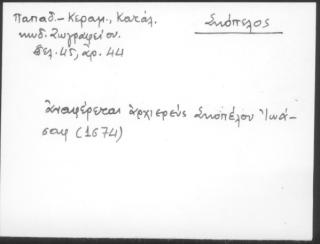 Παπαδ.-Κεραμ., Κατάλ.
κωδ. Ζωγραφείου.
Σελ. 45, ἀρ. 44
Σκόπελος
ἀναφέρεται ἀρχιερεὺς Σκοπέλου Ἰωά-
σαφ (1674)